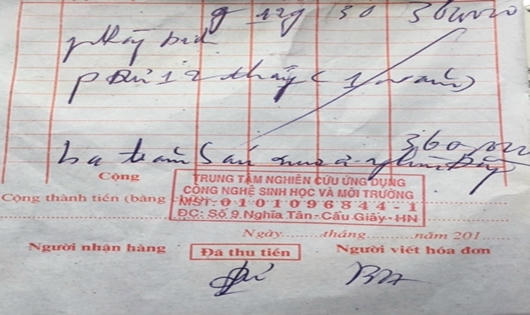 g 12g 30 360.000
tháng (1 năm)
360.000
Ba trăm Sáu mươi nghìn đồng
Cộng
Cộng thành tiền (bằng
TRUNG TÂM NGHIÊN CỨU ỨNG DỤNG
CÔNG NGHỆ SINH HỌC VÀ MÔI TRƯỜNG
MST: 0101096844-1
ĐC: Số 9 Nghĩa Tân - Cầu Giấy - HN
Ngày......tháng..........năm 201....
Người nhận hàng
Đã thu tiền
Người viết hóa đơn